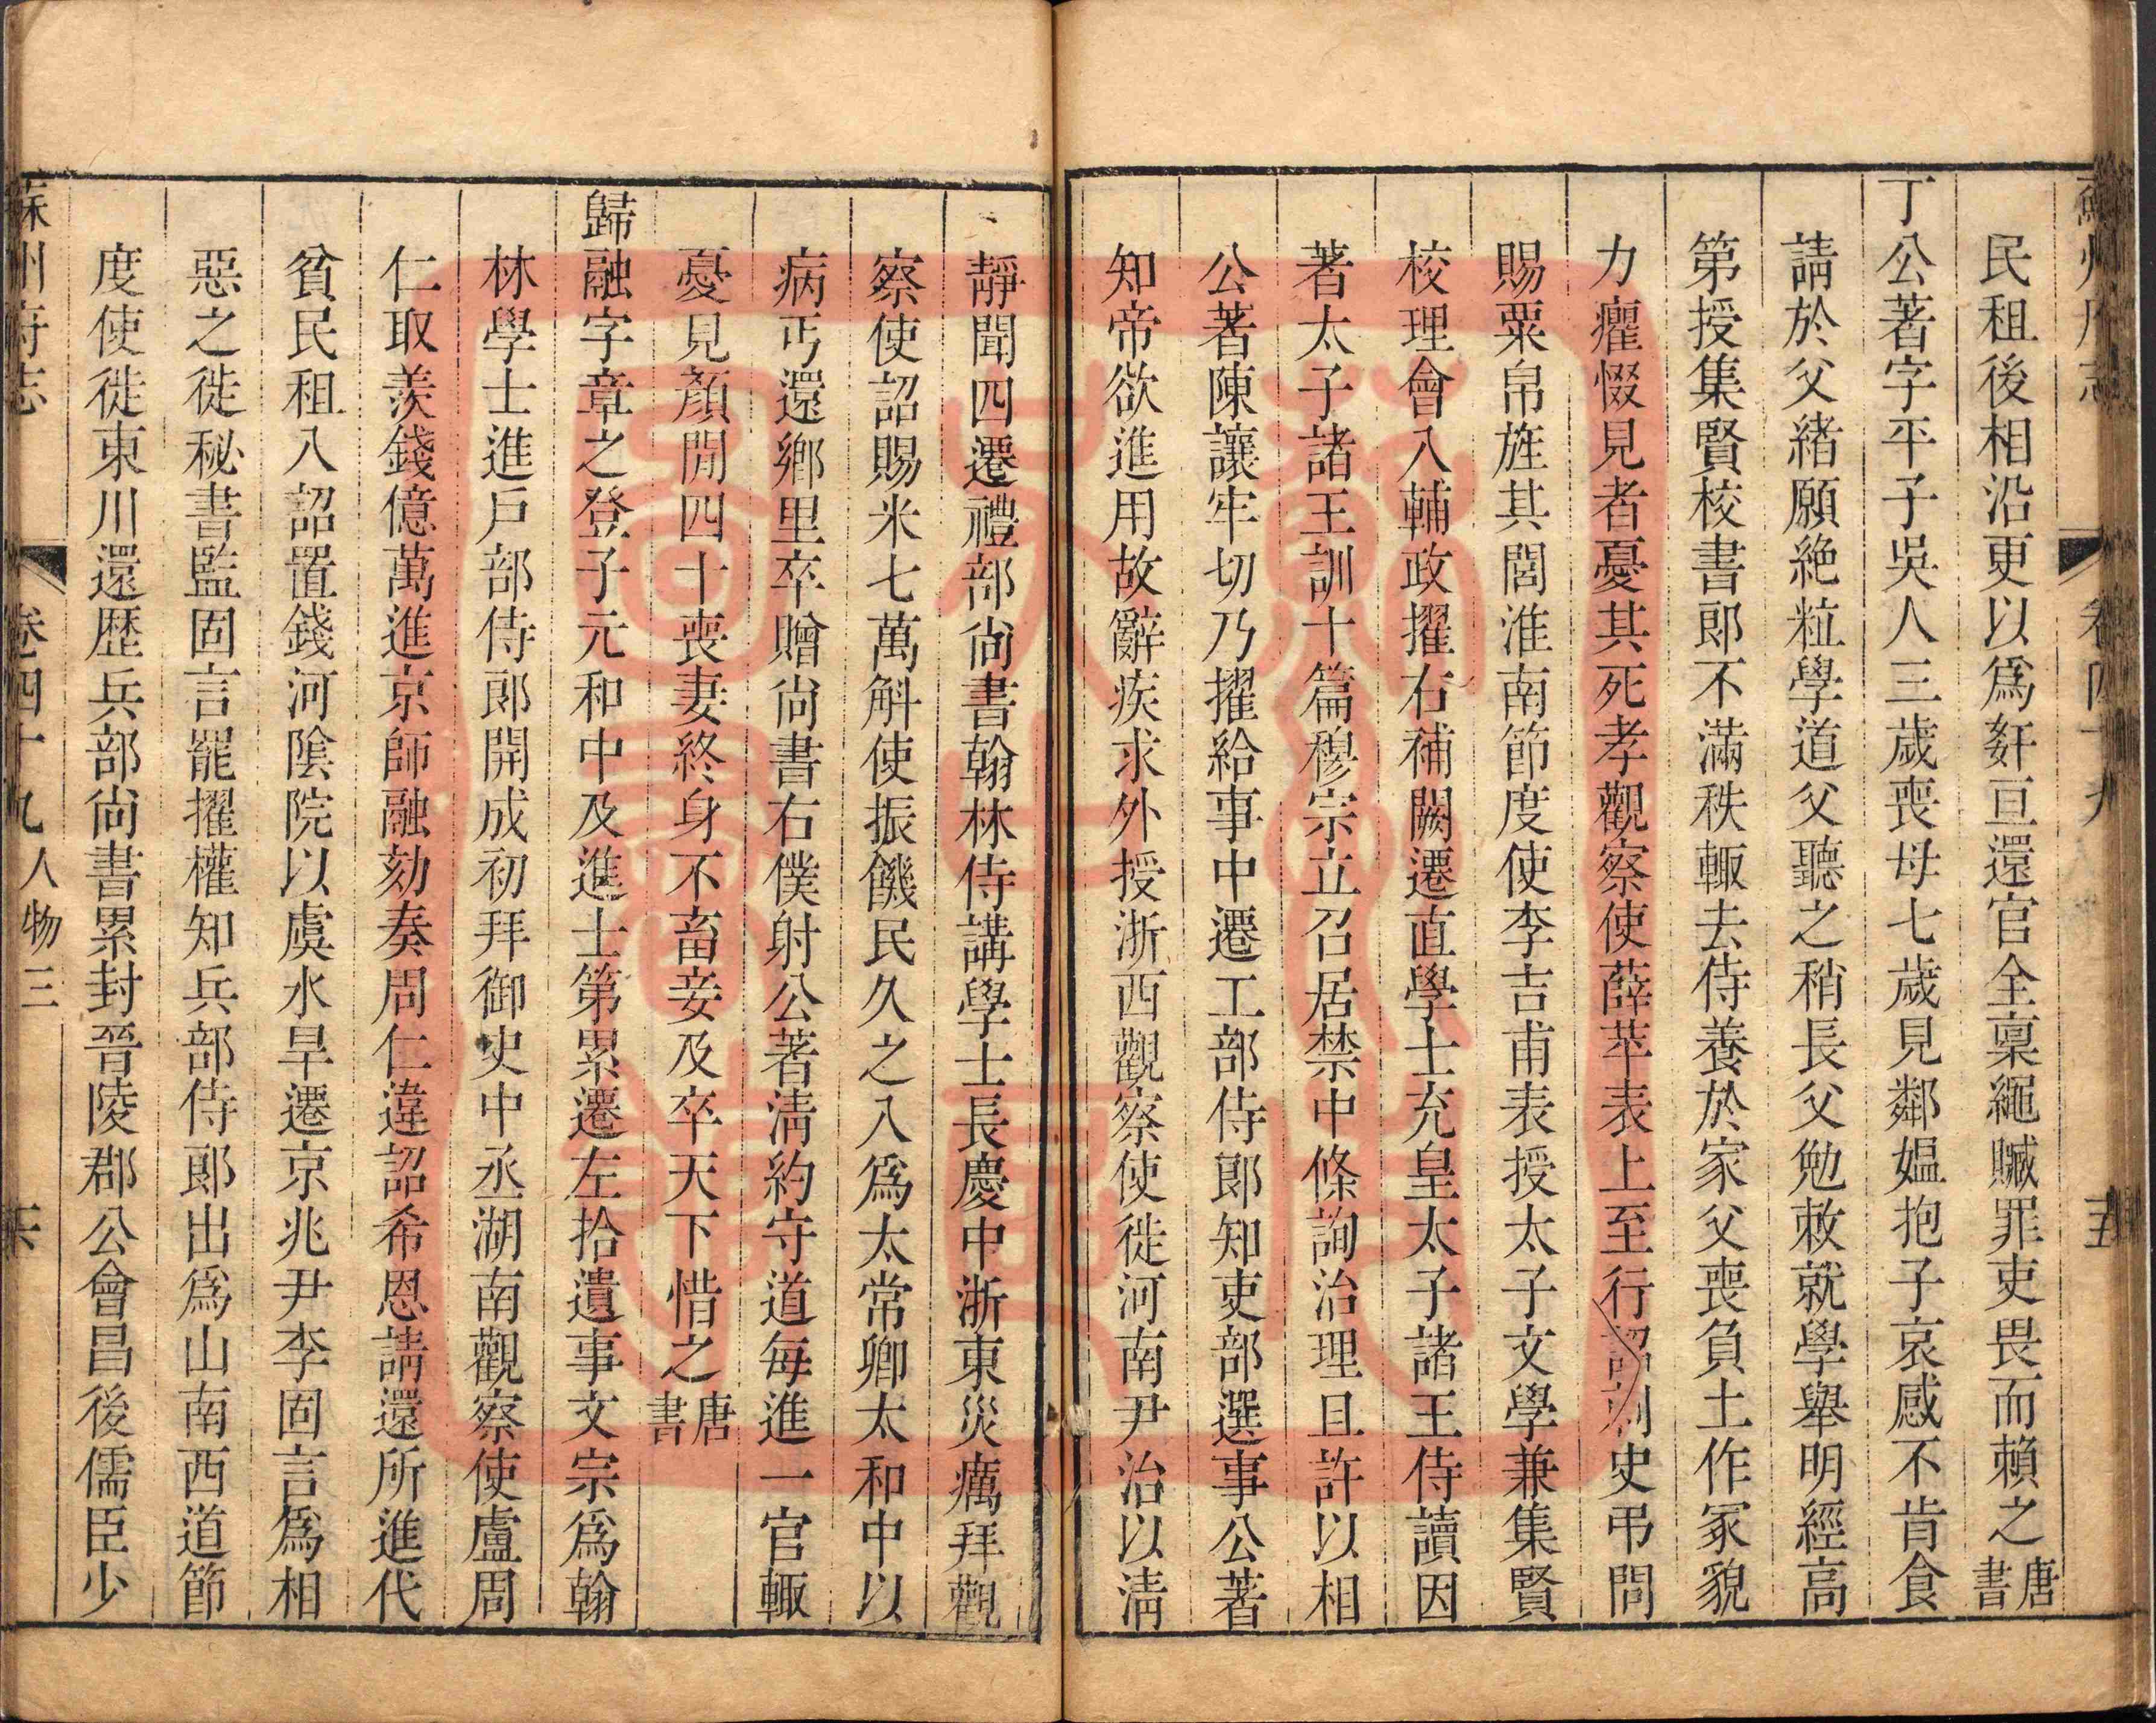 民租後相沿更以爲姧亘還官全稟繩贓罪吏畏而賴之唐書
丁公著字平子吳人三歲喪母七歲見鄰媼抱子哀感不肯食
請於父緒願絶粒學道父聽之稍長父勉敕就學舉明經高
第授集賢校書郎不滿秩輒去侍養於家父喪負土作冢貌
力癯惙見者憂其死孝觀察使薛苹表上至行詔刺史弔問
賜粟帛旌其閭淮南節度使李吉甫表授太子文學兼集賢
校理會入輔政擢右補闕遷直學士充皇太子諸王侍讀因
著太子諸王訓十篇穆宗立召居禁中條詢治理且許以相
公著陳讓牢切乃擢給事中遷工部侍郎知吏部選事公著
知帝欲進用故辭疾求外授浙西觀察使徙河南尹治以淸
靜聞四遷禮部尙書翰林侍講學士長慶中浙東災癘拜觀
察使詔賜米七萬斛使振饑民久之入爲太常卿太和中以
病丐還鄉里卒贈尙書右僕射公著淸約守道每進一官輒
憂見顏間四十喪妻終身不畜妾及卒天下惜之唐書
歸融字章之登子元和中及進士第累遷左拾遺事文宗爲翰
林學士進戶部侍郎開成初拜御史中丞湖南觀察使盧周
仁取羨錢億萬進京師融劾奏周仁違詔希恩請還所進代
貧民租入詔置錢河陰院以虞水旱遷京兆尹李固言爲相
惡之徙秘書監固言罷擢權知兵部侍郎出爲山南西道節
度使徙東川還歴兵部尙書累封晉陵郡公會昌後儒臣少
蘇州府志 卷四十九 人物三